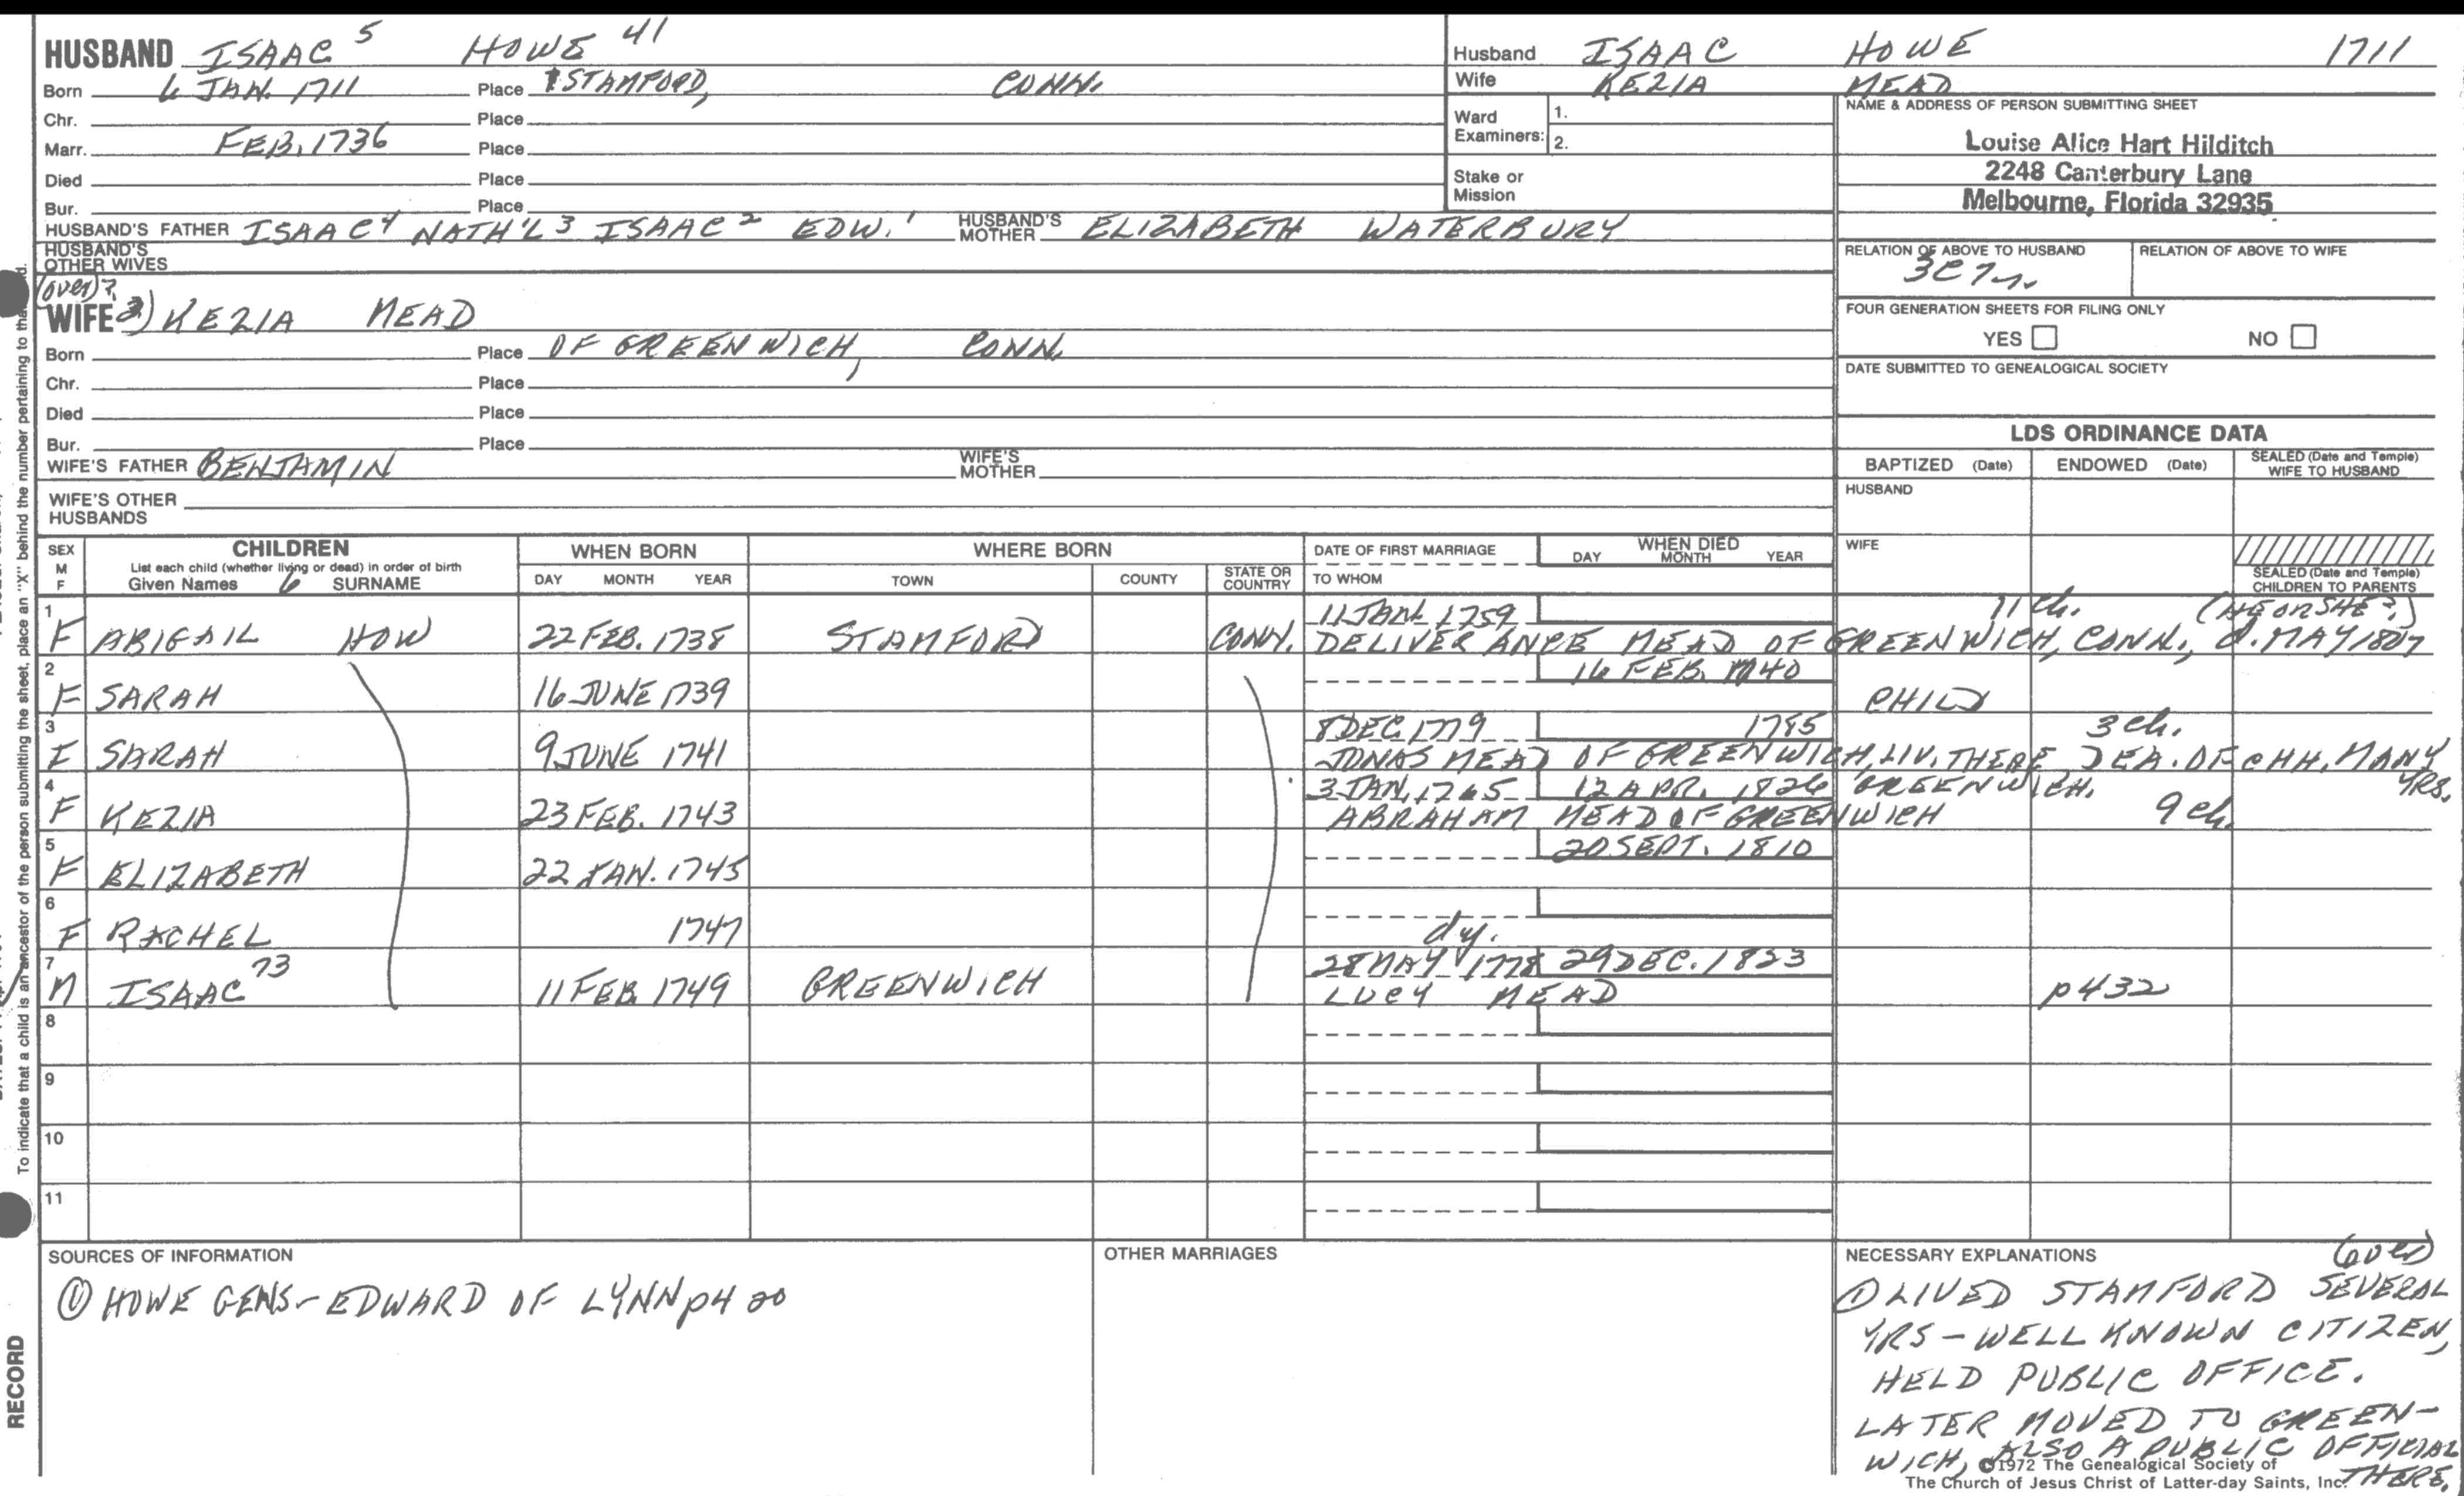 HUSBAND ISAAC 5 HOWE 41
Born 6 JAN. 1711 Place STAMFORD, CONN.
Chr. Place
Marr. FEB. 1736 Place
Died Place
Bur. Place
HUSBAND'S FATHER ISAAC 4 NATH'L 3 ISAAC 2 EDW. 1 HUSBAND'S MOTHER ELIZABETH WATERBURY
HUSBAND'S OTHER WIVES
(over)?
WIFE 2) KEZIA MEAD
Born Place OF GREENWICH, CONN.
Chr. Place
Died Place
Bur. Place
WIFE'S FATHER BENJAMIN WIFE'S MOTHER
WIFE'S OTHER HUSBANDS
Husband ISAAC HOWE 1711
Wife KEZIA MEAD
Ward Examiners: 1.
2.
Stake or Mission
NAME & ADDRESS OF PERSON SUBMITTING SHEET
Louise Alice Hart Hilditch
2248 Canterbury Lane
Melbourne, Florida 32935
RELATION OF ABOVE TO HUSBAND RELATION OF ABOVE TO WIFE
3C 7r.
FOUR GENERATION SHEETS FOR FILING ONLY
YES NO
DATE SUBMITTED TO GENEALOGICAL SOCIETY
LDS ORDINANCE DATA
BAPTIZED (Date) ENDOWED (Date) SEALED (Date and Temple) WIFE TO HUSBAND
HUSBAND
WIFE
SEALED (Date and Temple) CHILDREN TO PARENTS
SEX M F CHILDREN WHEN BORN WHERE BORN DATE OF FIRST MARRIAGE WHEN DIED
List each child (whether living or dead) in order of birth
Given Names 6 SURNAME DAY MONTH YEAR TOWN COUNTY STATE OR COUNTRY TO WHOM DAY MONTH YEAR
1 11 JAN. 1759 11 ch. (HE OR SHE?)
F ABIGAIL HOW 22 FEB. 1738 STAMFORD CONN. DELIVERANCE MEAD OF GREENWICH, CONN., d. MAY 1807
2 16 FEB. 1740
F SARAH 16 JUNE 1739 CHILD
3 8 DEC 1779 1785 3 ch.
F SARAH 9 JUNE 1741 JONAS MEAD OF GREENWICH, LIV. THERE DEA. OF CHH. MANY YRS.
4 3 JAN. 1765 12 APR. 1826 GREENWICH.
F KEZIA 23 FEB. 1743 ABRAHAM MEAD OF GREENWICH 9 ch.
5 20 SEPT. 1810
F ELIZABETH 22 JAN. 1745
6
F RACHEL 1747 dy.
7 28 MAY 1778 29 DEC. 1823
M ISAAC 73 11 FEB. 1749 GREENWICH LUCY MEAD p432
8
9
10
11
SOURCES OF INFORMATION
① HOWE GENS - EDWARD OF LYNN p420
OTHER MARRIAGES
NECESSARY EXPLANATIONS (over)
① LIVED STAMFORD SEVERAL
YRS - WELL KNOWN CITIZEN,
HELD PUBLIC OFFICE.
LATER MOVED TO GREEN-
WICH, ALSO A PUBLIC OFFICIAL
THERE.
©1972 The Genealogical Society of
The Church of Jesus Christ of Latter-day Saints, Inc.
To indicate that a child is an ancestor of the person submitting the sheet, place an "X" behind the number pertaining to
RECORD